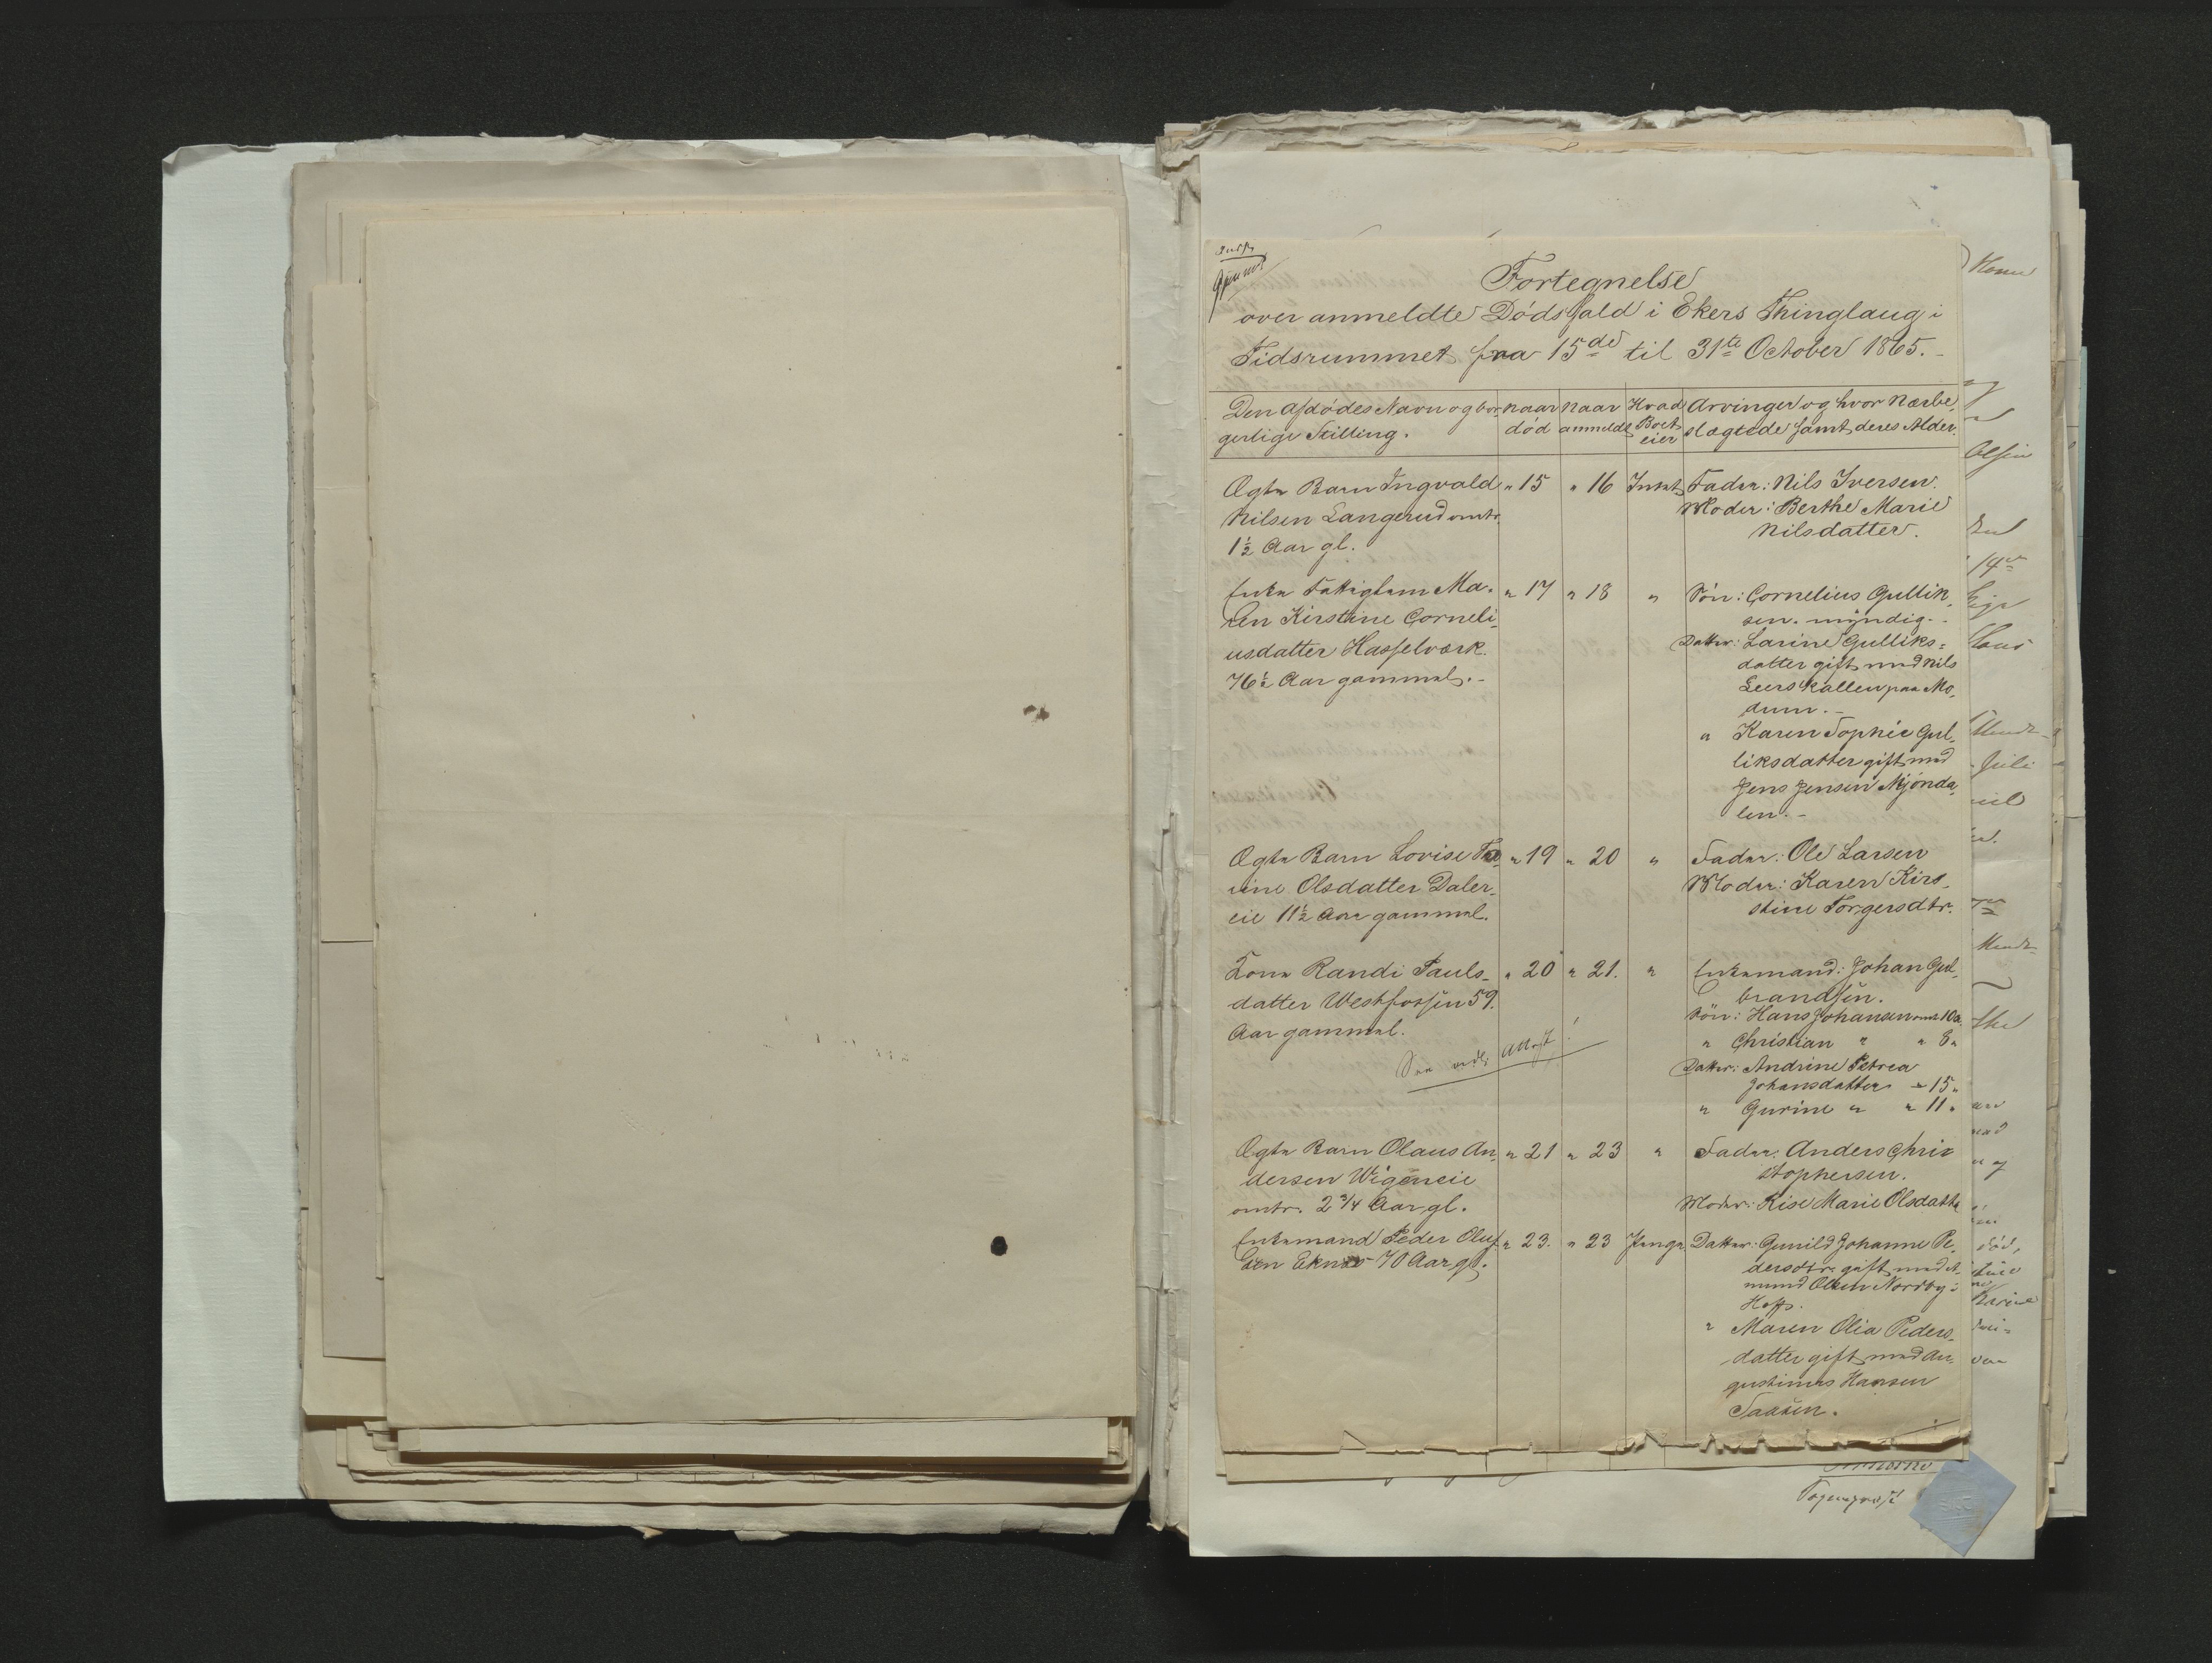 Fortegnelse
over anmeldte Dödsfald i Ekers Thinglaug i
Tidsrummet fra 15de til 31te October 1865.
Den afdödes Navn og bor-
gerlige Stilling.
naar
död
naar
anmeldt
Hvad
Boet
eier
Arvinger og hvor Nærbe-
slægtede samt deres Alder.
Ægte Barn Ingvald
Nilsen Langerud omtr.
1½ Aar gl.
" 15
" 16
Intet
Fader: Nils Iversen.
Moder: Berthe Marie
Nilsdatter.
Enke Fattiglem Ma-
ren Kirstine Corneli-
usdatter Hasselværk
76½ Aar gammel.-
" 17
" 18
"
Sön: Cornelius Gullik-
sen. myndig.-
Datter: Larine Gulliks=
datter gift med Nils
paa Mo-
dum.-
" Karen Sophie Gul-
liksdatter gift med
Jens Jensen Mjönda-
len.-
Ægte Barn Lovise
Olsdatter Daler-
eie 11½ Aar gammel.
" 19
" 20
"
Fader: Ole Larsen
Moder: Karen Kirs-
tine Torgersdtr.
Kone Randi Pauls-
datter Westfossen 59
Aar gammel.
" 20
" 21.
"
Enkemand: Johan Gul-
brandsen.
Sön: Hans Johansen omtr 10a.
" Christian " " 8"
Datter: Andrine Petrea
Johansdatter " 15"
" Gurine " " 11"
Attest!
Ægte Barn Olaus An-
dersen Wigeneie
omtr. 2¾ Aar gl.
" 21
" 23
"
Fader: Anders Chris
stophersen.
Moder: Lise Marie Olsdatter
Enkemand Peder Oluf-
sen Eknes 70 Aar gl.
" 23.
" 23
Penge
Datter: Gunild Johanne Pe-
dersdtr. gift med A-
mund Olsen Nordby i
Hoff.
" Maren Olia Peders-
datter gift med Au-
gustinus Hansen
Taasen.